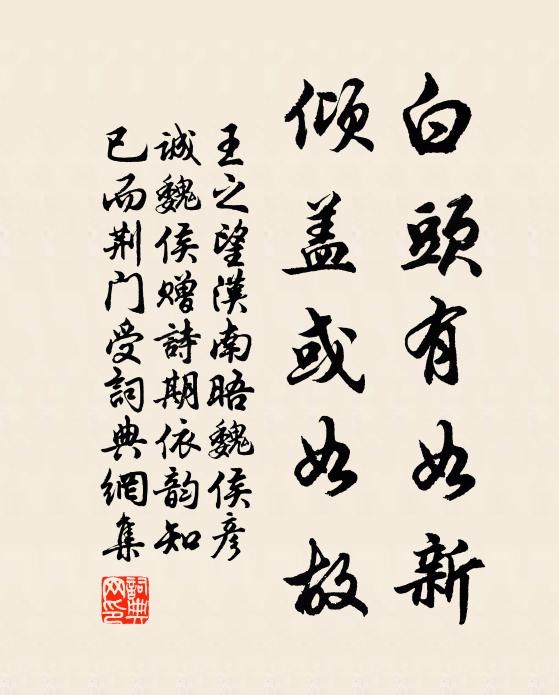 白頭有如新
傾盖或如故
王之望漢南晤魏侯彦
诚魏侯赠詩期依韵知
已而荆门受詞典網集
詞典網印